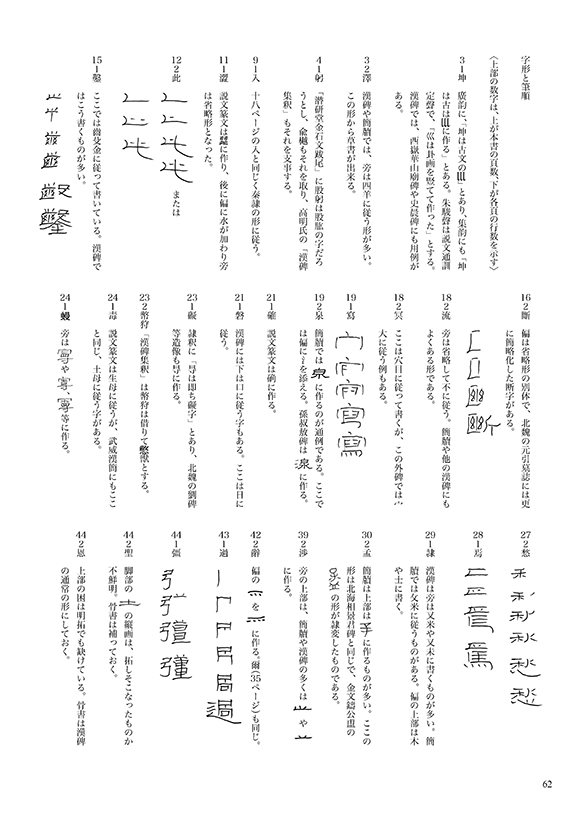 字形と筆順
〈上部の数字は、上が本書の頁数、下が各頁の行数を示す〉
3 1 坤 廣韵に、「坤は古文の巛」とあり、集韵にも「坤
は古は巛に作る」とある。朱駿聲は説文通訓
定聲で、「巛は卦画を竪てて作った」とする。
漢碑では、西嶽華山廟碑や史晨碑にも用例が
ある。
3 2 澤 漢碑や簡牘では、旁は四羊に従う形が多い。
この形から草書が出来る。
4 1 躬 『潜研堂金石文跋尾』に股躬は股肱の字だろ
うとし、兪樾もそれを取り、高明氏の『漢碑
集釈』もそれを支事する。
9 1 入 十八ページの人と同じく秦隷の形に従う。
11 1 澀 説文篆文は歰に作り、後に偏に水が加わり旁
は省略形となった。
12 2 此 または
15 1 鑿 ここでは齒殳金に従って書いている。漢碑で
はこう書くものが多い。
16 2 斷 偏は省略形の別体で、北魏の元引墓誌には更
に簡略化した断字がある。
18 2 流 旁は省略して不に従う。簡牘や他の漢碑にも
よくある形である。
18 2 冥 ここは穴目に従って書くが、この外碑では宀
大に従う例もある。
19 1 寫
19 2 泉 簡牘では泉に作るのが通例である。ここで
は偏に氵を添える。孫叔敖碑は湶に作る。
21 1 確 説文篆文は碻に作る。
21 1 磐 漢碑には下は口に従う字もある。ここは日に
従う。
23 1 礙 隷釈に「㝵は即ち礙字」とあり、北魏の劉碑
等造像も㝵に作る。
23 2 幣狩 「漢碑集釈」は幣狩は借りて憋獣とする。
24 1 毒 説文篆文は生母に従うが、武威漢簡にもここ
と同じ、土母に従う字がある。
24 1 旁は や 等に作る。
27 2 愁
28 1 焉
29 1 隷 漢碑は旁は又米や又未に書くものが多い。簡
牘では攵米に従うものがある。偏の上部は木
や士に書く。
30 2 孟 簡牘は上部は子に作るものが多い。ここの
形は北海相景君碑と同じで、金文鑄公盨の
の形が隷変したものである。
39 2 渉 旁の上部は、簡牘や漢碑の多くは や
に作る。
42 2 辭 偏の を に作る。爾(35ページ)も同じ。
43 1 過
44 1 彊
44 2 聖 脚部の土の縦画は、拓しそこなったものか
不鮮明。骨書は補っておく。
44 2 恩 上部の困は明拓でも缺けている。骨書は漢碑
の通常の形にしておく。
62